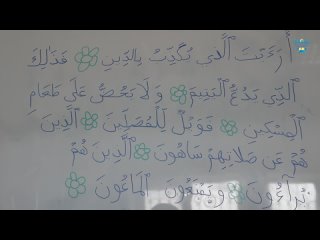 أَرَءَيْتَ ٱلَّذِي يُكَذِّبُ بِالدِّينِ فَذَٰلِكَ
ٱلَّذِي يَدُعُّ ٱلْيَتِيمَ وَلَا يَحُضُّ عَلَىٰ طَعَامِ
ٱلْمِسْكِينِ فَوَيْلٌ لِّلْمُصَلِّينَ ٱلَّذِينَ
هُمْ عَن صَلَاتِهِمْ سَاهُونَ ٱلَّذِينَ هُمْ
يُرَآءُونَ وَيَمْنَعُونَ ٱلْمَاعُونَ